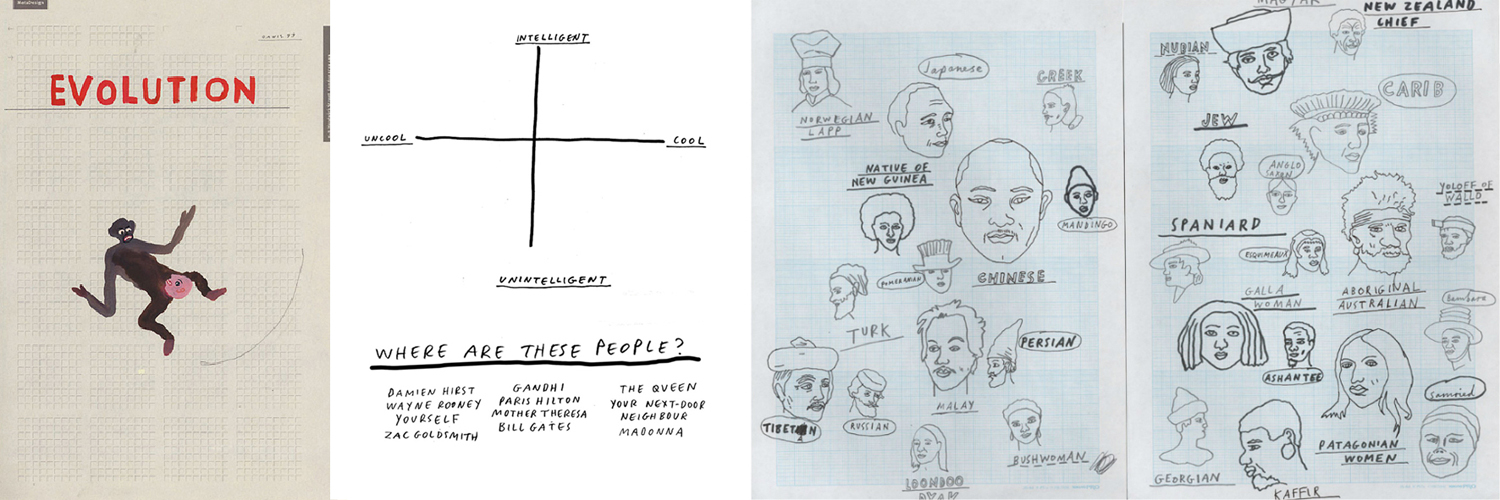 MetaDesign
EVOLUTION
INTELLIGENT
UNCOOL
COOL
UNINTELLIGENT
WHERE ARE THESE PEOPLE?
DAMIEN HIRST
WAYNE ROONEY
YOURSELF
ZAC GOLDSMITH
GANDHI
PARIS HILTON
MOTHER THERESA
BILL GATES
THE QUEEN
YOUR NEXT-DOOR
NEIGHBOUR
MADONNA
Japanese
GREEK
NORWEGIAN
LAPP
NATIVE OF
NEW GUINEA
MANDINGO
POMERANIAN
CHINESE
TURK
PERSIAN
MALAY
TIBETAN
RUSSIAN
BUSHWOMAN
LOONDOO
DYAK
MAGYAR
NEW ZEALAND
CHIEF
NUBIAN
CARIB
JEW
ANGLO
SAXON
YOLOFF OF
WALLO
SPANIARD
ESQUIMEAUX
GALLA
WOMAN
ABORIGINAL
AUSTRALIAN
Bambara
ASHANTEE
Samoied
PATAGONIAN
WOMEN
GEORGIAN
KAFFIR